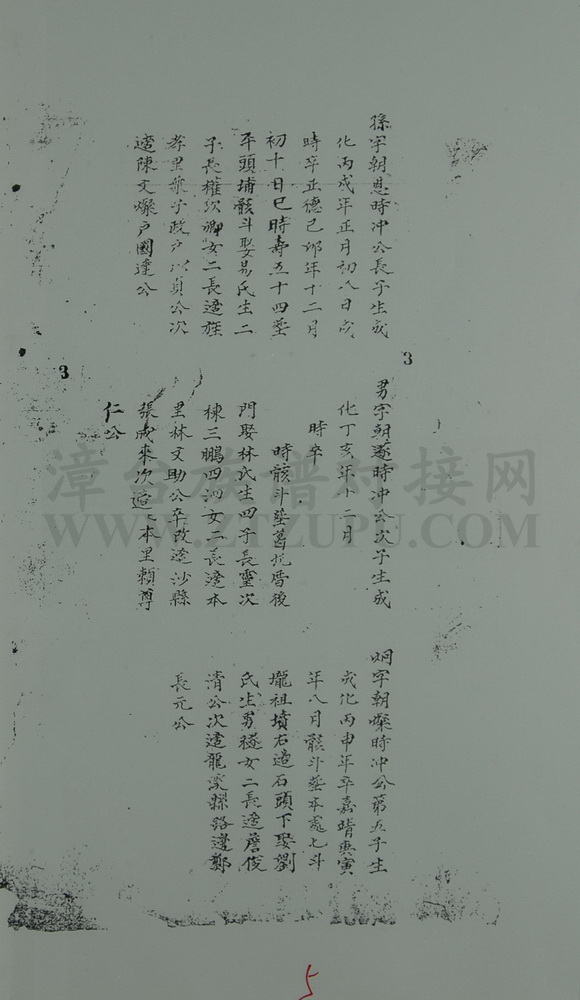 孫字朝恩時冲公長子生成
化丙戌年正月初八日戌
時卒正德己卯年十二月
初十日巳時壽五十四塟
平頭埔骸斗娶易氏生二
子長權次卿女二長適旌
孝里葉子政戶以貞公次
適陳文燦戶國達公
3
3
男字朝遂時冲公次子生成
化丁亥年十二月
時卒
時骸斗塟葛坑厝後
門娶林氏生四子長璽次
棟三鵬四泗女二長適本
里林文助公卒改適沙縣
張成來次適本里賴尊
仁公
炯字朝燦時冲公第五子生
成化丙申年卒嘉靖庚寅
年八月骸斗塟本處七斗
壠祖墳右邊石頭下娶劉
氏生男 女二長適詹俊
清公次適龍溪縣路邊鄭
長元公
漳台族谱对接网
WWW.ZTZUPU.COM
5